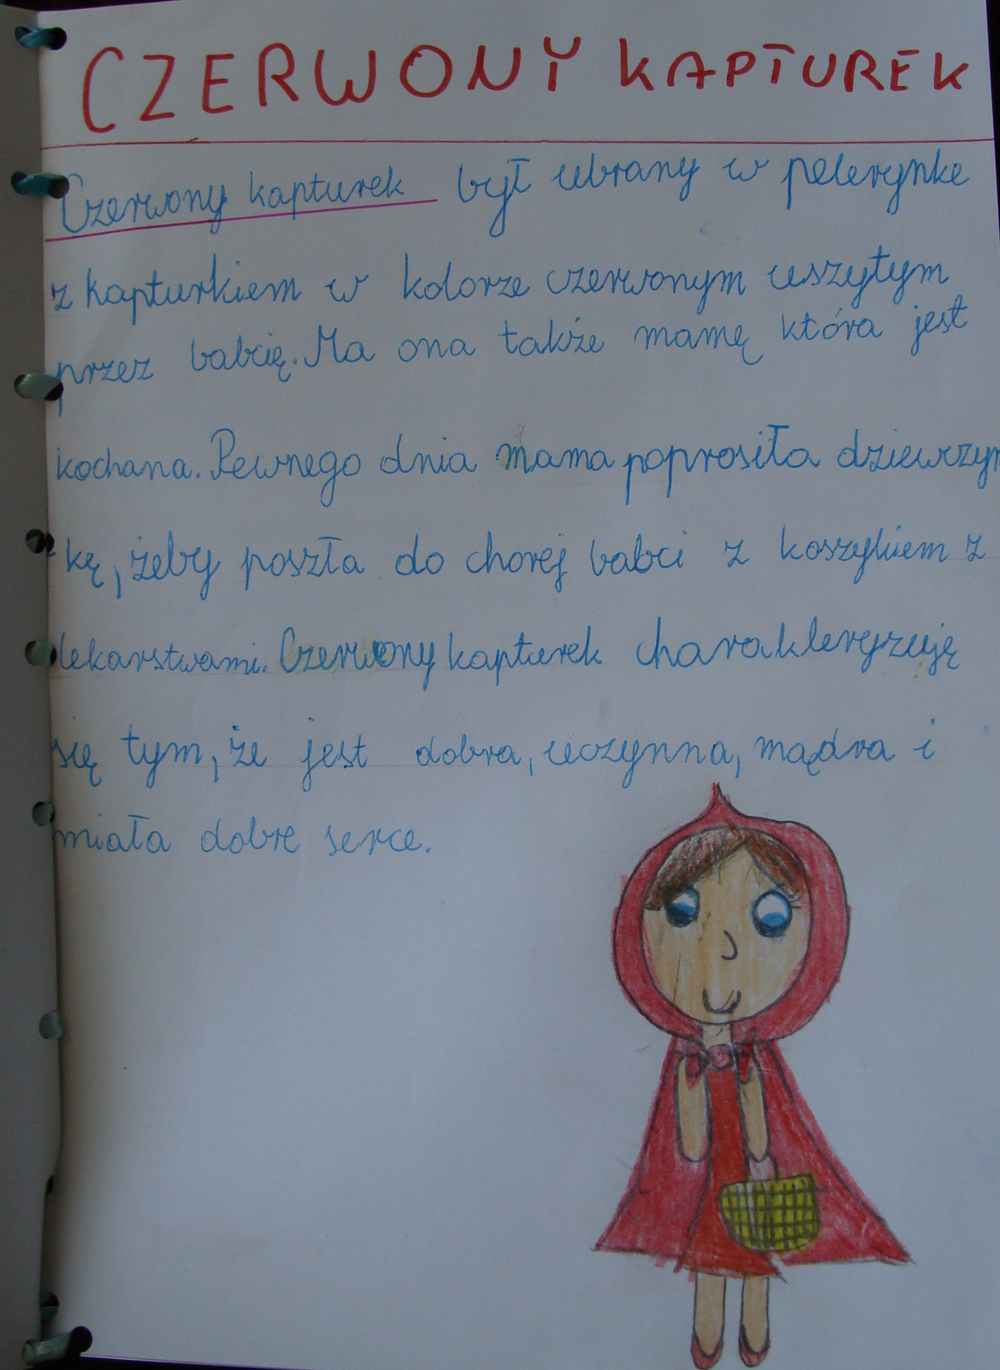 CZERWONY KAPTUREK
Czerwony kapturek był ubrany w pelerynke
z kapturkiem w kolorze czerwonym uszytym
przez babcię. Ma ona także mamę która jest
kochana. Pewnego dnia mama poprosiła dziewczyn
-kę, żeby poszła do chorej babci z koszykiem z
lekarstwami. Czerwony kapturek charakteryzuję
się tym, że jest dobra, uczynna, mądra i
miała dobre serce.